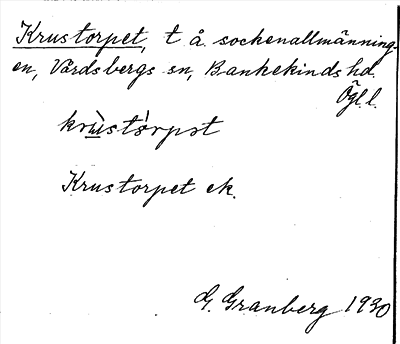 Krustorpet, t å sockenallmänning-
en, Vårdsbergs sn, Bankekinds hd.
Ögl. l.
krùstórpət
Krustorpet ek.
G. Granberg 1930